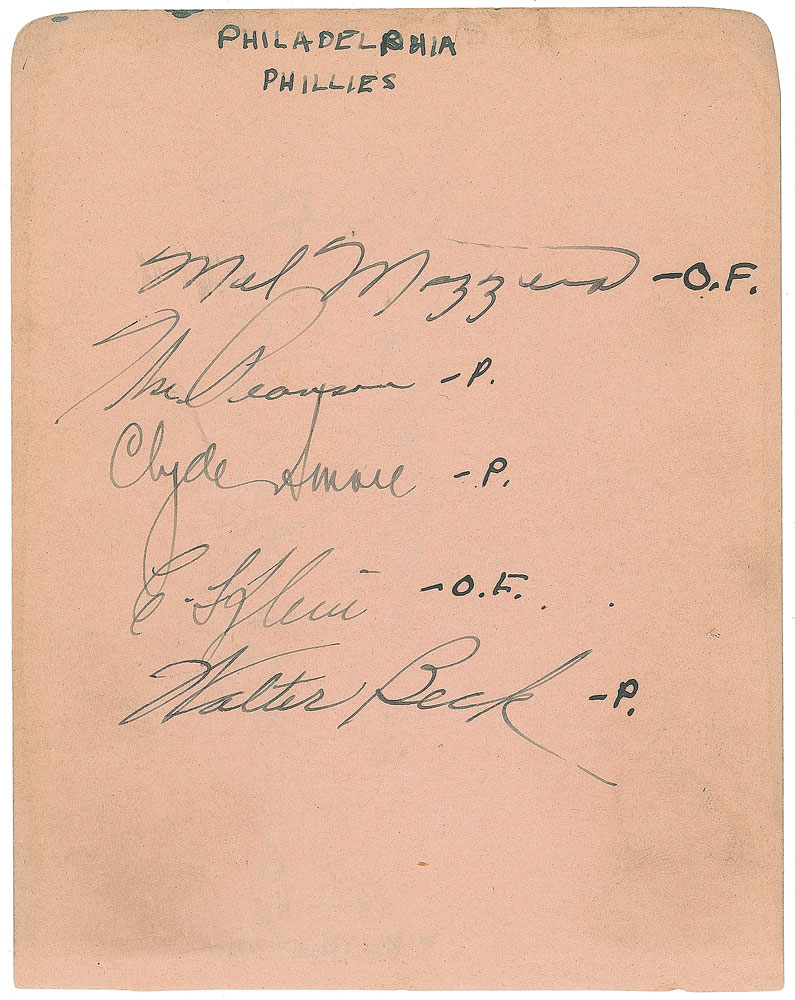 PHILADELPHIA
PHILLIES
Mel Mazzera -O.F.
Ike Pearson -P.
Clyde Smoll -P.
Klein -O.F.
Walter Beck -P.